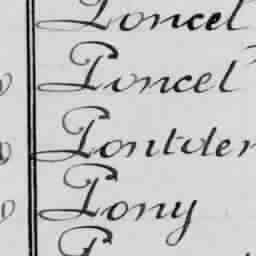 Poncel
Poncel
Pontder
Pony